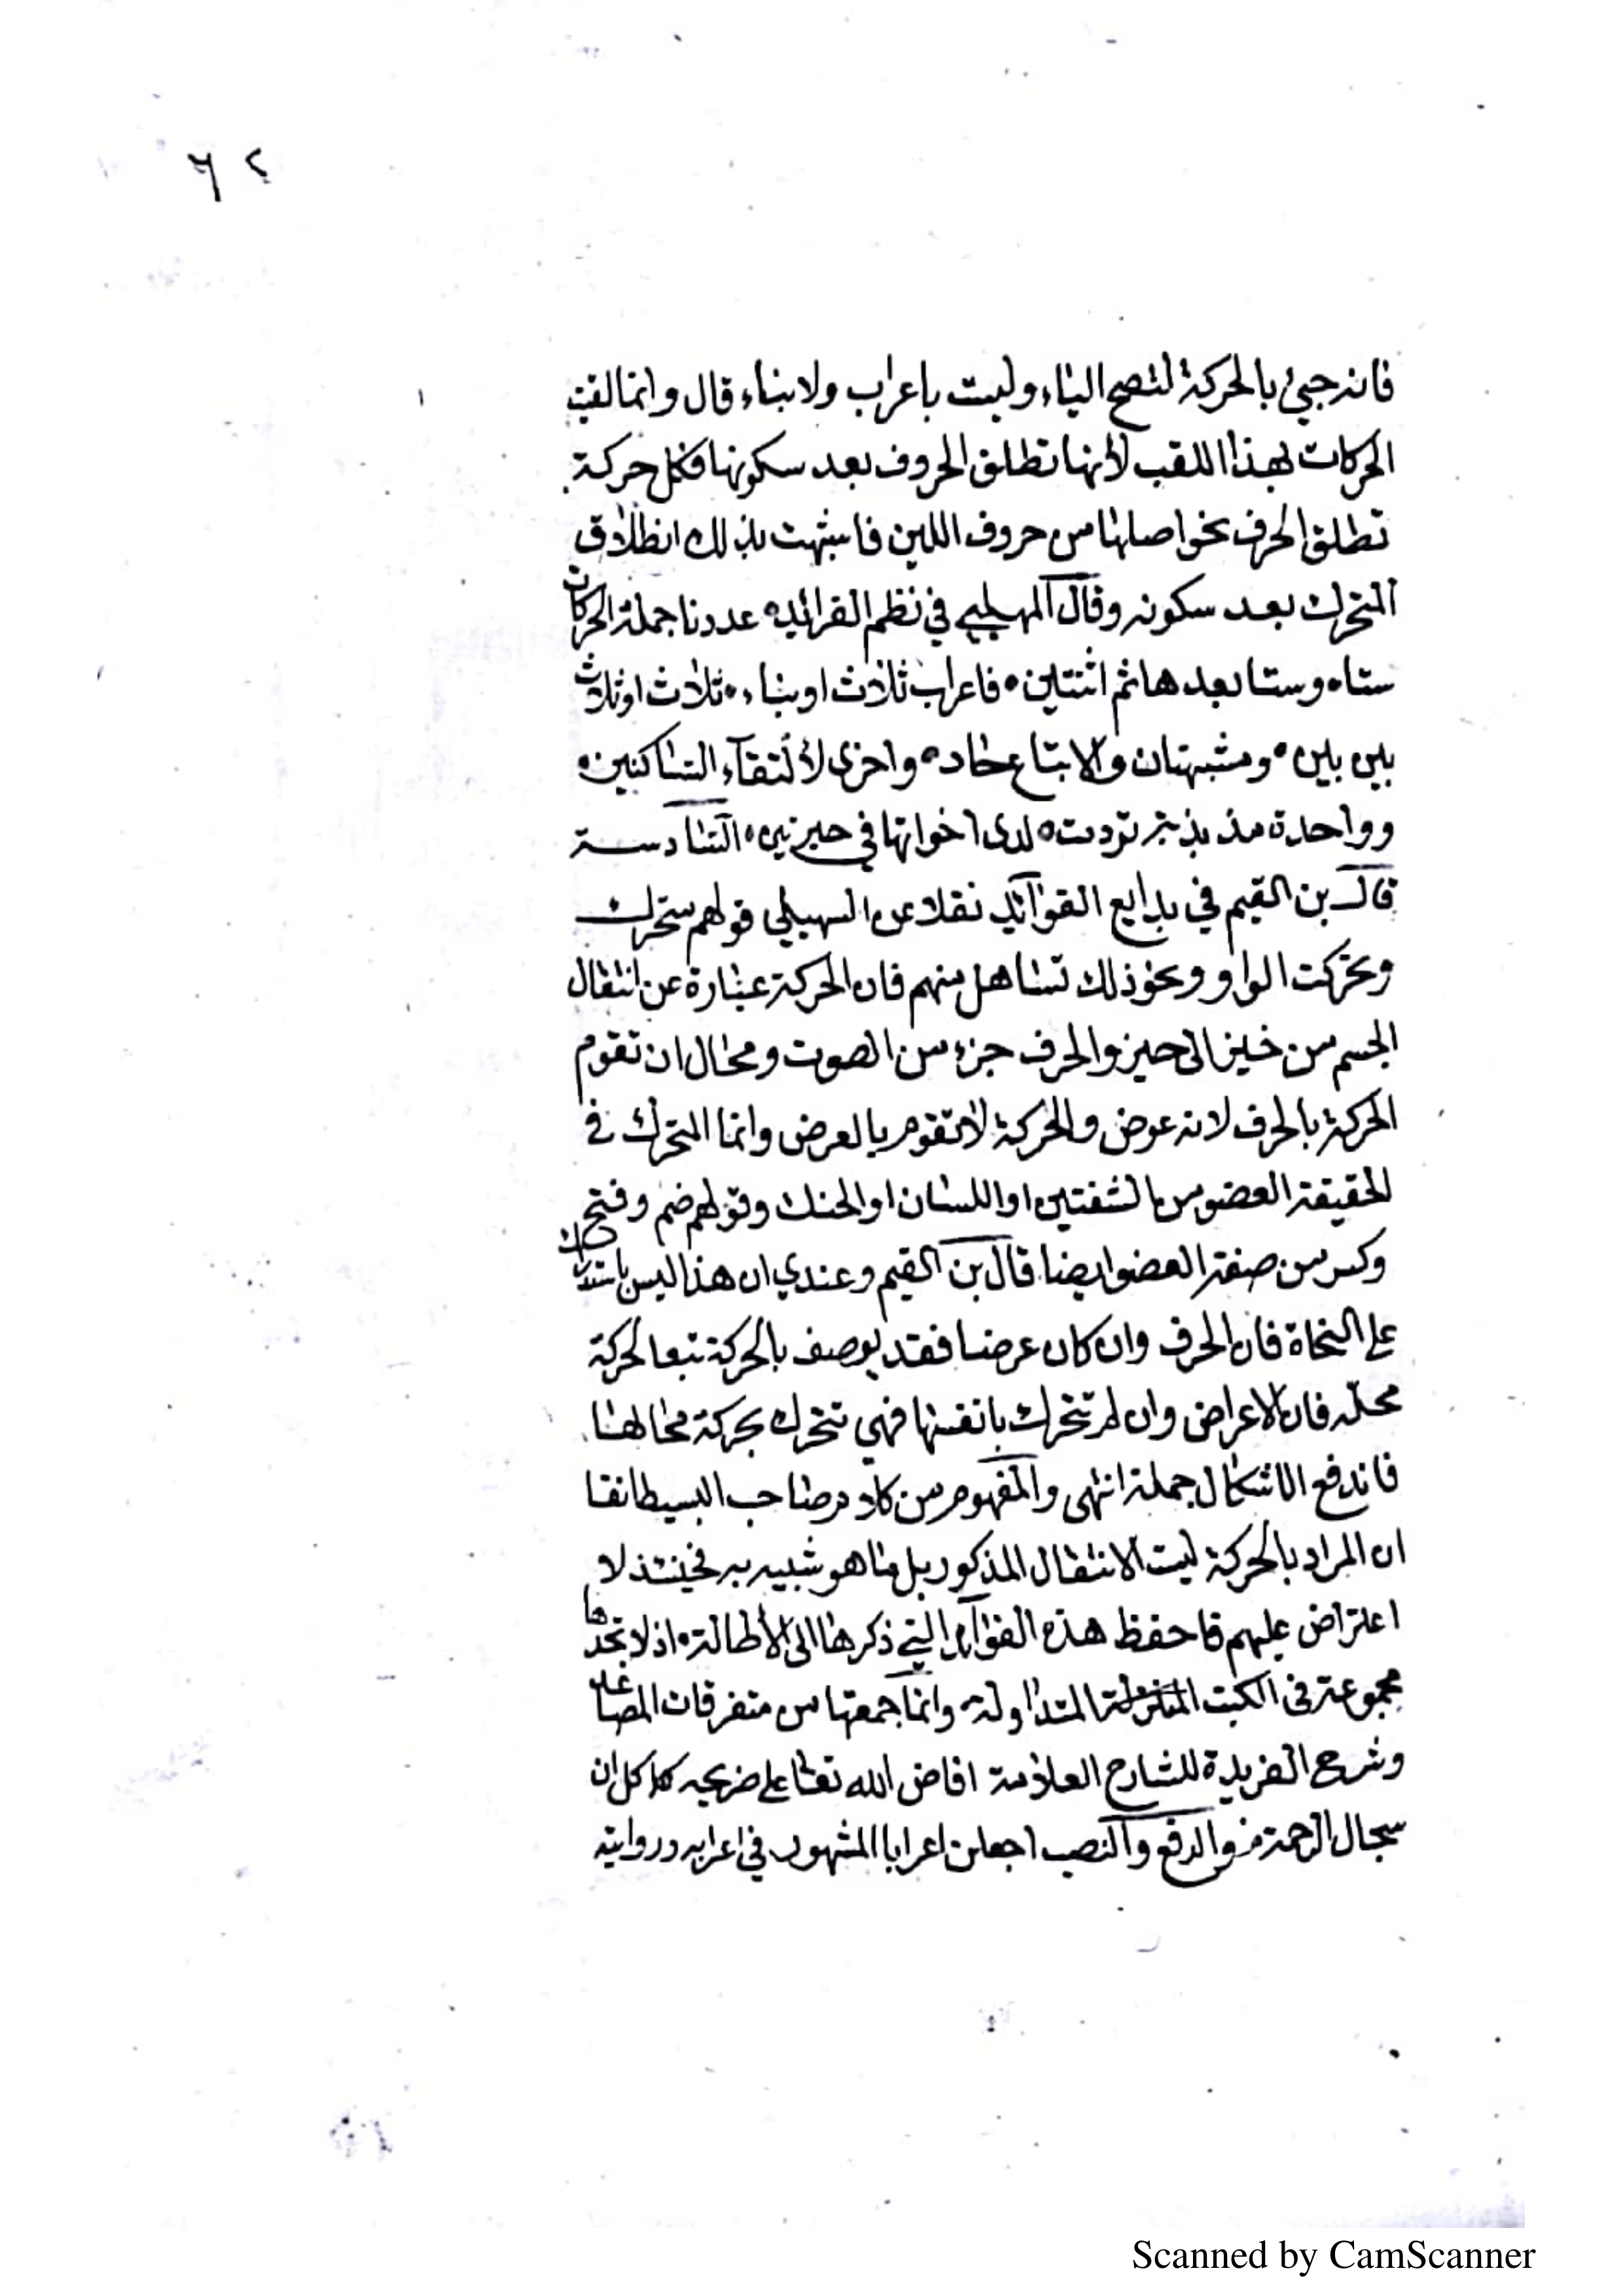 ٦٢
فانه جيئ بالحركة لتصح الياء وليست باعراب ولا بناء قال وانما لقبت
الحركات بهذا اللقب لأنها تطلق الحروف بعد سكونها فكل حركة
تطلق الحرف نحو اصلها من حروف اللين فاشبهت بذلك انطلاق
المتحرك بعد سكونه وقال المهلبي في نظم الفرائد عددنا جملة الحركات
ستا ه وستا بعدها ثم اثنتين ه فاعراب ثلاث او بناء ه ثلاث او ثلاث
بين بين ه ومشبهتان والاتباع حاد ه واخرى لألتقآء الساكنين ه
وواحدة مذبذبة تردت ه لدى اخواتها في حيزين ه السادسة
قال بن القيم في بدايع الفوآئد نقلا عن السهيلي قولهم متحرك
وتحركت الواو ونحو ذلك تساهل منهم فان الحركة عبارة عن انتقال
الجسم من حيز الى حيز والحرف جزء من الصوت ومحال ان تقوم
الحركة بالحرف لانه عوض والحركة لا تقوم بالعرض وانما المتحرك في
الحقيقة العضو من الشفتين او اللسان او الحنك وقولهم ضم وفتح
وكسر من صفة العضو ايضا قال بن القيم وعندي ان هذا ليس باستدراك
على النحاة فان الحرف وان كان عرضا فقد يوصف بالحركة تبعا لحركة
محله فان الاعراض وان لم تتحرك بانفسها فهي تتحرك بحركة محالها
فاندفع الاشكال جملة انتهى والمفهوم من كلام صاحب البسيط انفا
ان المراد بالحركة ليست الانتقال المذكور بل ما هو شبيه به فحينئذ لا
اعتراض عليهم فاحفظ هذه الفوآئد التي ذكرها الى الأطالة ه اذ لا تجدها
مجموعة في الكتب المتداولة وانما جمعتها من متفرقات المصاعد
وشرح الفريدة للشارح العلامة افاض الله تعا على ضريحه كلا كل ان
سجال الرحمة م والرفع والنصب اجعلن اعرابا المشهور في اعرابه وروايته
Scanned by CamScanner